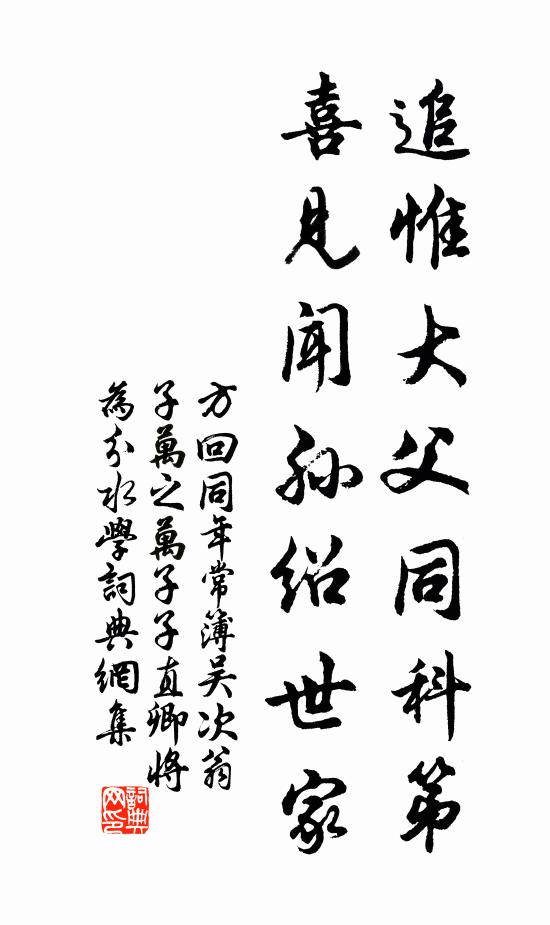 追惟大父同科第
喜見聞孙绍世家
方回同年常簿吴次翁
子萬之萬子子直卿將
為分水學詞典網集
詞典网印